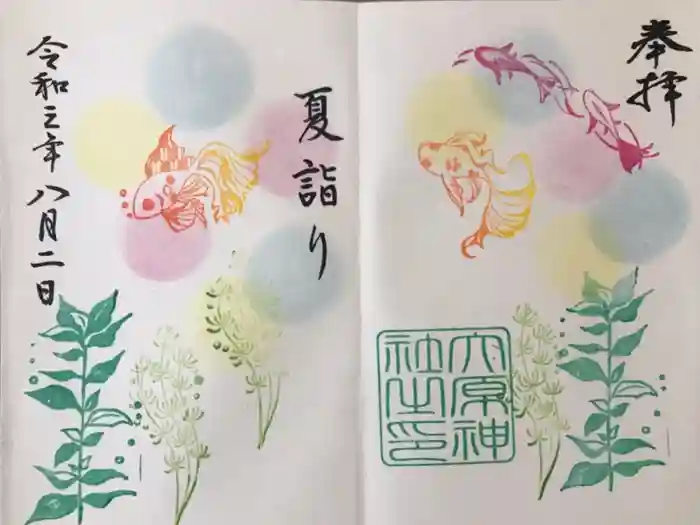 奉拝
夏詣り
令和元年八月二日
大原神
社之印